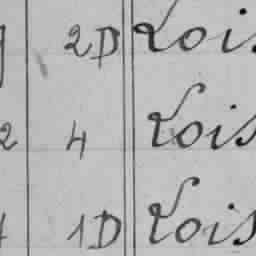 2D Lois
2 4 Lois
1D Lois